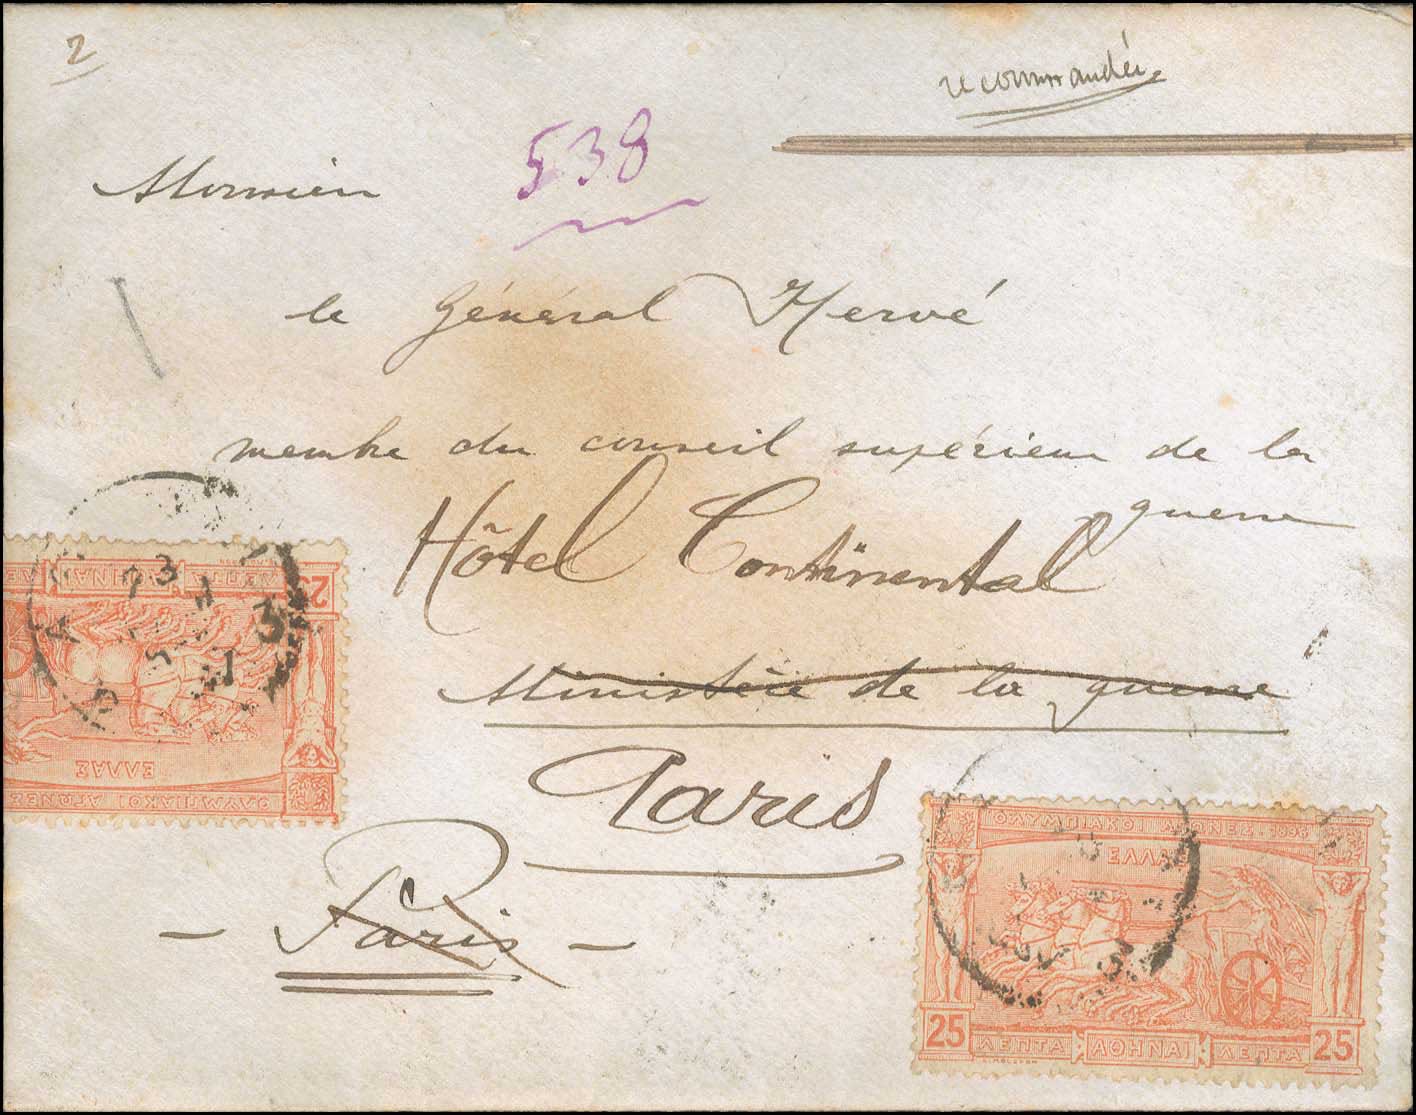 2
recommandée
538
Monsieur
le Général Hervé
membre du conseil supérieur de la
guerre
Hôtel Continental
Ministère de la guerre
Paris
- Paris -
25
ΛΕΠΤΑ
ΕΛΛΑΣ
ΟΛΥΜΠΙΑΚΟΙ ΑΓΩΝΕΣ
3
ΟΛΥΜΠΙΑΚΟΙ 1896
ΕΛΛΑ
3
25 ΛΕΠΤΑ ΑΘΗΝΑΙ ΛΕΠΤΑ 25